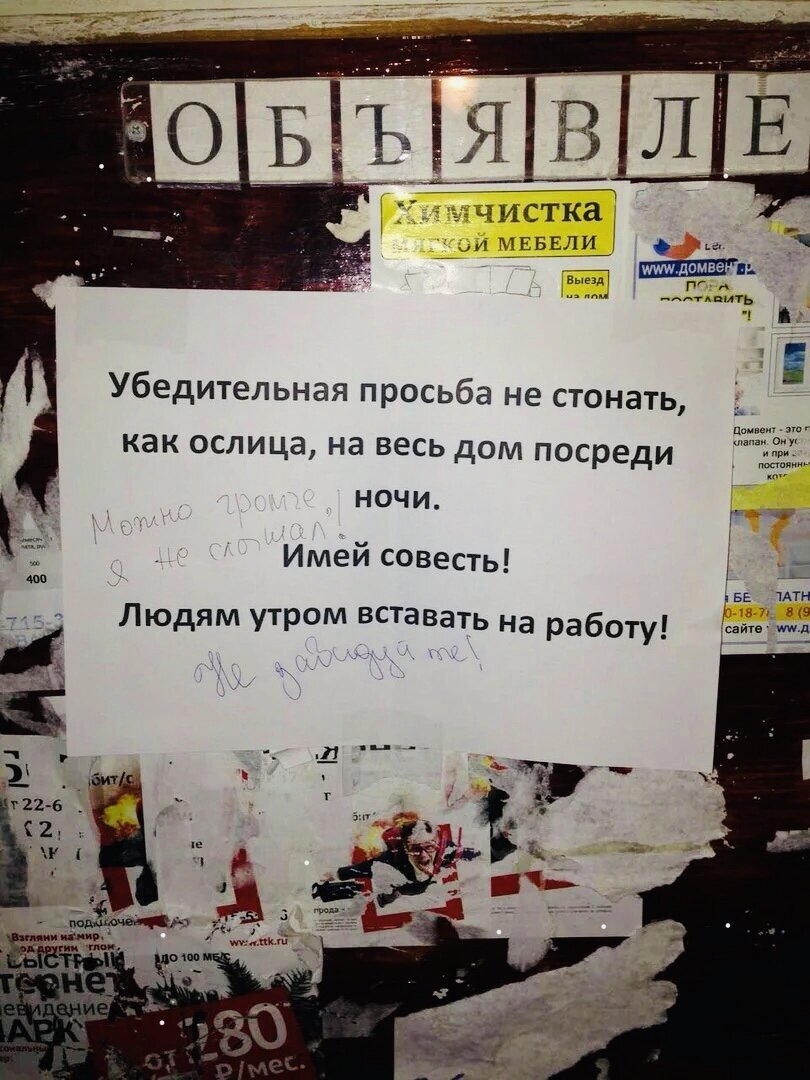 ОБЪЯВЛЕ
Химчистка
МЯГКОЙ МЕБЕЛИ
Выезд
на дом
www.домвент.р
ПОРА
ПОСТАВИТЬ
Убедительная просьба не стонать,
как ослица, на весь дом посреди
ночи.
Можно громче,
я не слышал!
Имей совесть!
Людям утром вставать на работу!
Не завидуйте!
Домвент - это
клапан. Он
и при
500
400
715-3
сайте www.д
бит/с
22-6
прода
www.ttk.ru
Взгляни на мир
под другим
ДО 100 МБ/С
от 280
₽/мес.